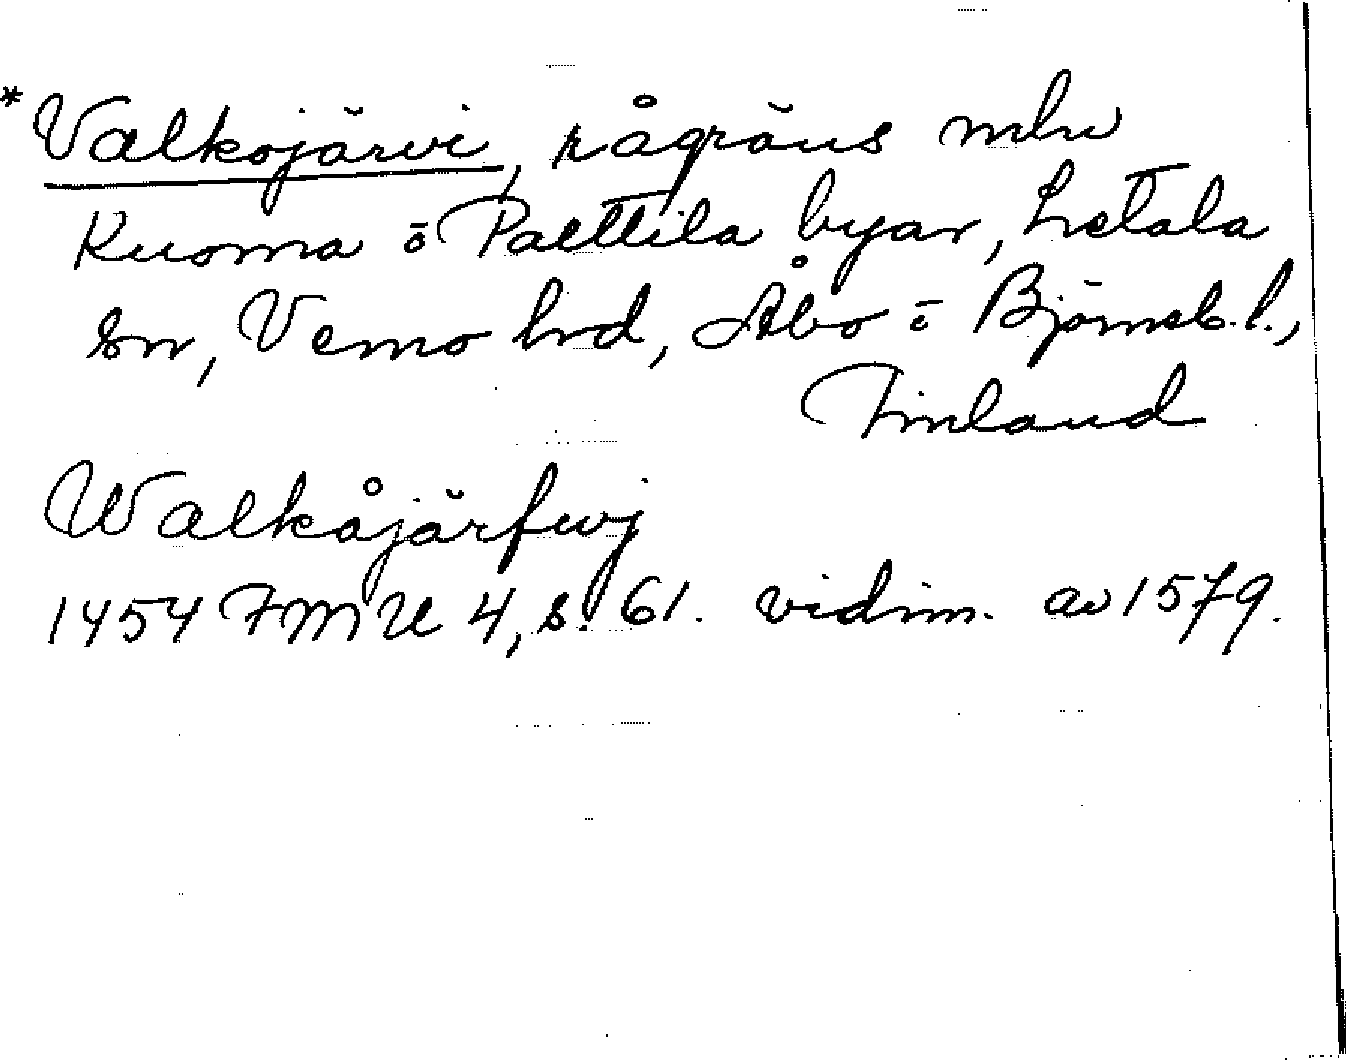 *Valkojärvi, rågräns mlw
Kuoma ö Paettila byar, Letala
sn, Vemo hrd, Åbo ö Björneb. l.,
Finland
Walkåjärfwj
1454 FMU 4, s. 61. vidim. av 1579.